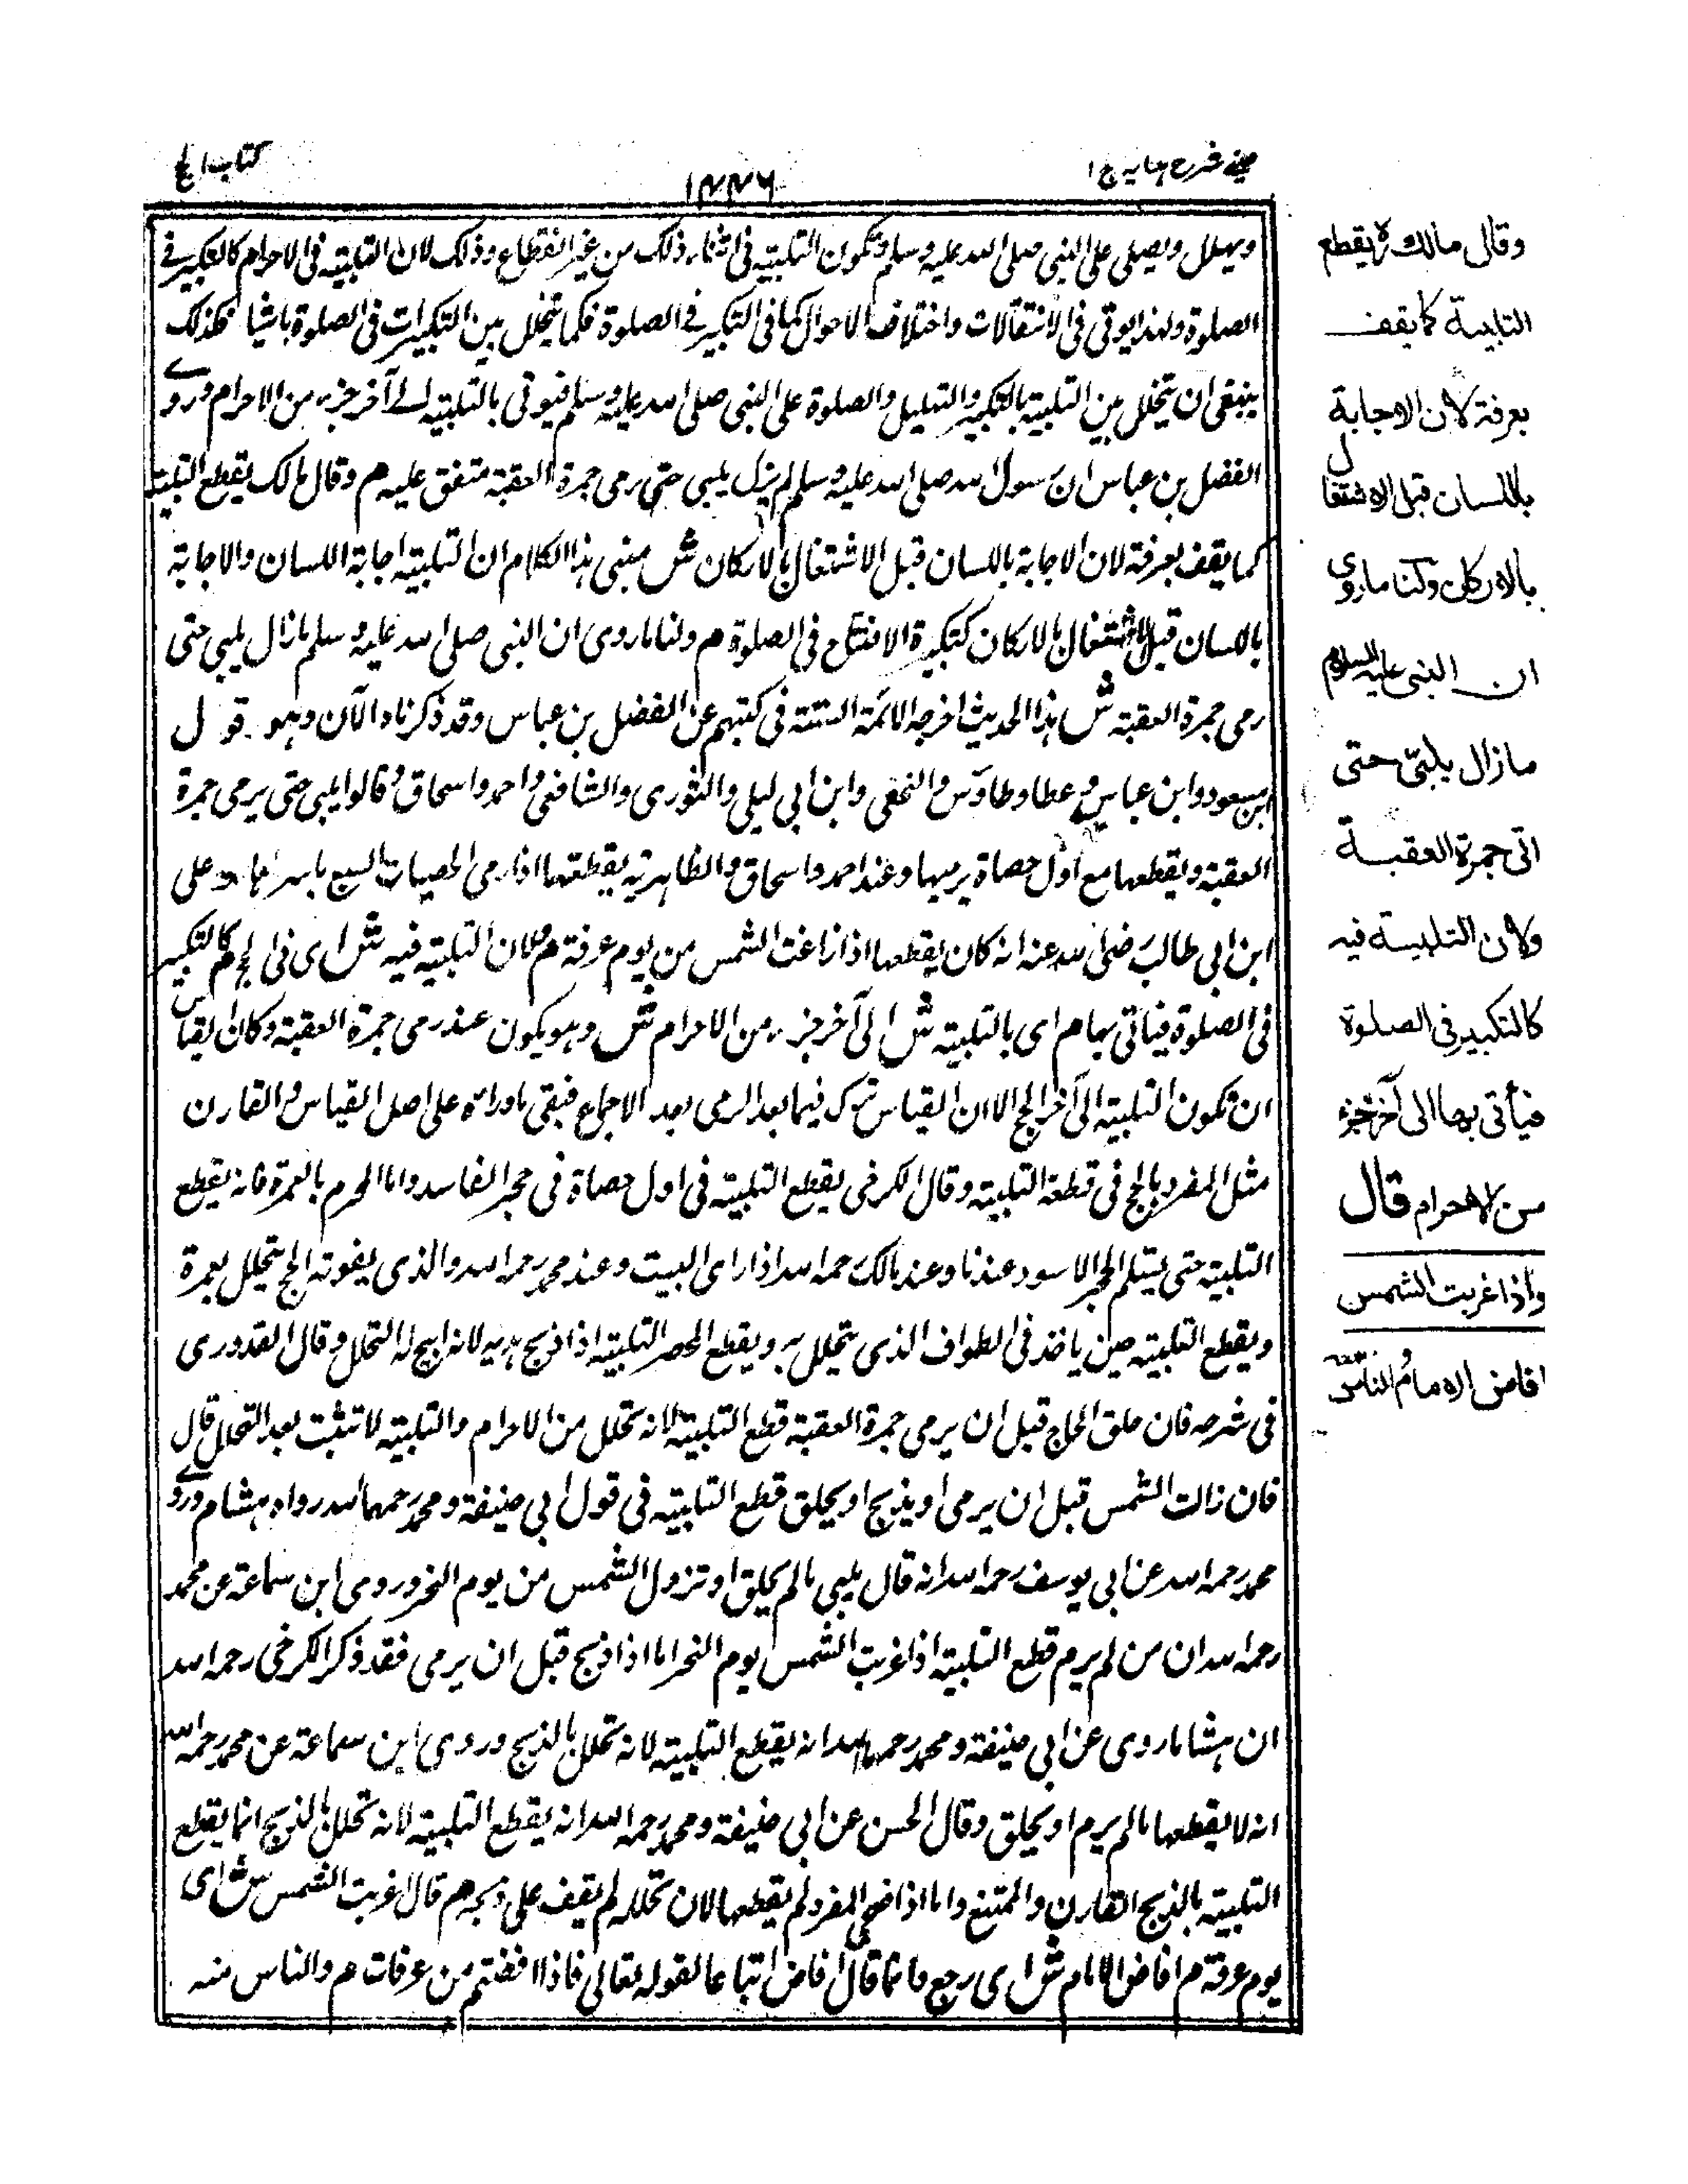 عيني شرح هدايه ج ١
١٣٣٦
كتاب الحج
ويهلل ويصلى على النبى صلى الله عليه وسلم وتكون التلبية فى اثناء ذلك من غير انقطاع وذلك لان التلبية فى الاحرام كالتكبير فى
الصلوة ولهذا يوتى فى الانتقالات واختلاف الاحوال كما فى التكبير فى الصلوة فكما يتخلل بين التكبيرات فى الصلوة باشيا فكذلك
ينبغى ان يتخلل بين التلبية بالتكبير والتهليل والصلوة على النبى صلى الله عليه وسلم فيوتى بالتلبية الى آخر جزء من الاحرام وروى
الفضل بن عباس ان رسول الله صلى الله عليه وسلم لم يزل يلبى حتى رمى جمرة العقبة متفق عليه م وقال مالك يقطع التلبية
كما يقف بعرفة لان الاجابة باللسان قبل الاشتغال بالاركان ش مبنى هذا الكلام ان التلبية اجابة اللسان والاجابة
باللسان قبل الاشتغال بالاركان كتكبيرة الافتتاح فى الصلوة م ولنا ماروى ان النبى صلى الله عليه وسلم مازال يلبى حتى
رمى جمرة العقبة ش هذا الحديث اخرجه الائمة الستة فى كتبهم عن الفضل بن عباس وقد ذكرناه الآن وهو قول
ابن مسعود وابن عباس وعطا وطاوس والنخعى وابن ابى ليلى والثورى والشافعى واحمد واسحاق وقالوا يلبى حتى يرمى جمرة
العقبة ويقطعها مع اول حصاة يرميها وعند احمد واسحاق والظاهرية يقطعها اذا رمى الحصيات السبع باسرها وعلى
ابن ابى طالب رضى الله عنه انه كان يقطعها اذا زاغت الشمس من يوم عرفة م ولان التلبية فيه ش اى فى الحج م كالتكبير
فى الصلوة فيأتى بها م اى بالتلبية ش الى آخر جزء من الاحرام ش وهو يكون عند رمى جمرة العقبة وكان القياس
ان تكون التلبية الى آخر الحج الا ان القياس ترك فيما بعد الرمى بعد الاجماع فبقى ماوراءه على اصل القياس والقارن
مثل المفرد بالحج فى قطعة التلبية وقال الكرخى يقطع التلبية فى اول حصاة فى حجر الفاسد واما المحرم بالعمرة فانه يقطع
التلبية حتى يستلم الحجر الاسود عندنا وعند مالك رحمه الله اذا راى البيت وعند محمد رحمه الله والذى يفوته الحج يتحلل بعمرة
ويقطع التلبية حين ياخذ فى الطواف الذى يتحلل به ويقطع المحصر التلبية اذا ذبح هديه لانه ابيح له التحلل وقال القدورى
فى شرحه فان حلق الحاج قبل ان يرمى جمرة العقبة قطع التلبية لانه تحلل من الاحرام والتلبية لا تثبت بعد التحلل قال
فان زالت الشمس قبل ان يرمى او يذبح او يحلق قطع التلبية فى قول ابى حنيفة ومحمد رحمهما الله رواه هشام وروى
محمد رحمه الله عن ابى يوسف رحمه الله انه قال يلبى مالم يحلق او تزول الشمس من يوم النحر وروى ابن سماعة عن محمد
رحمه الله ان من لم يرم قطع التلبية اذا غربت الشمس يوم النحر اما اذا ذبح قبل ان يرمى فقد ذكر الكرخى رحمه الله
ان هشاما روى عن ابى حنيفة ومحمد رحمهما الله انه يقطع التلبية لانه تحلل بالذبح وروى ابن سماعة عن محمد رحمه الله
انه لا يقطعها مالم يرم او يحلق وقال الحسن عن ابى حنيفة ومحمد رحمه الله انه يقطع التلبية لانه تحلل بالذبح انما يقطع
التلبية بالذبح القارن والمتمتع واما اذا ضحى المفرد لم يقطعها لان تحلله لم يقف على ذبحه م قال غربت الشمس ش اى
يوم عرفة م افاض الامام ش اى رجع وانما قال افاض اتباعا لقوله تعالى فاذا افضتم من عرفات م والناس منه
وقال مالك رح يقطع
التلبية كما يقف
بعرفة لان الاجابة
باللسان قبل الاشتغال
بالاركان ولنا ماروى
ان النبى عليه السلام
مازال يلبّى حتى
اتى جمرة العقبة
ولان التلبية فيه
كالتكبير فى الصلوة
فيأتى بها الى آخر جزء
من الاحرام قال
واذا غربت الشمس
افاض الامامُ والناس